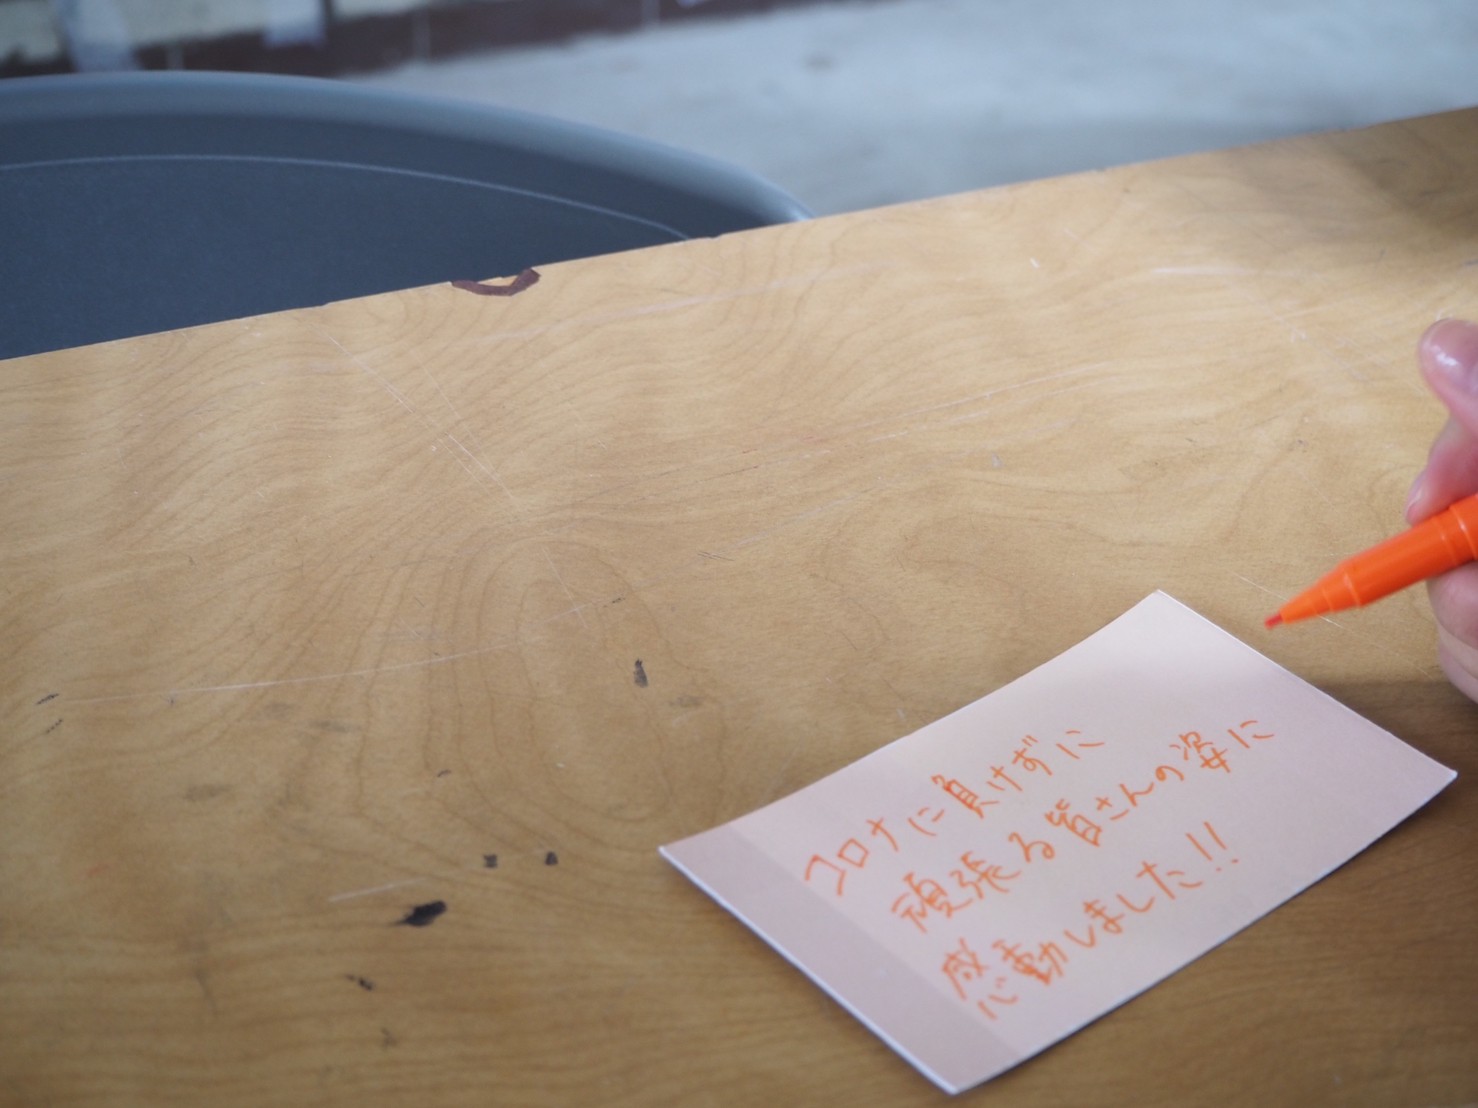 コロナに負けずに
頑張る皆さんの姿に
感動しました!!